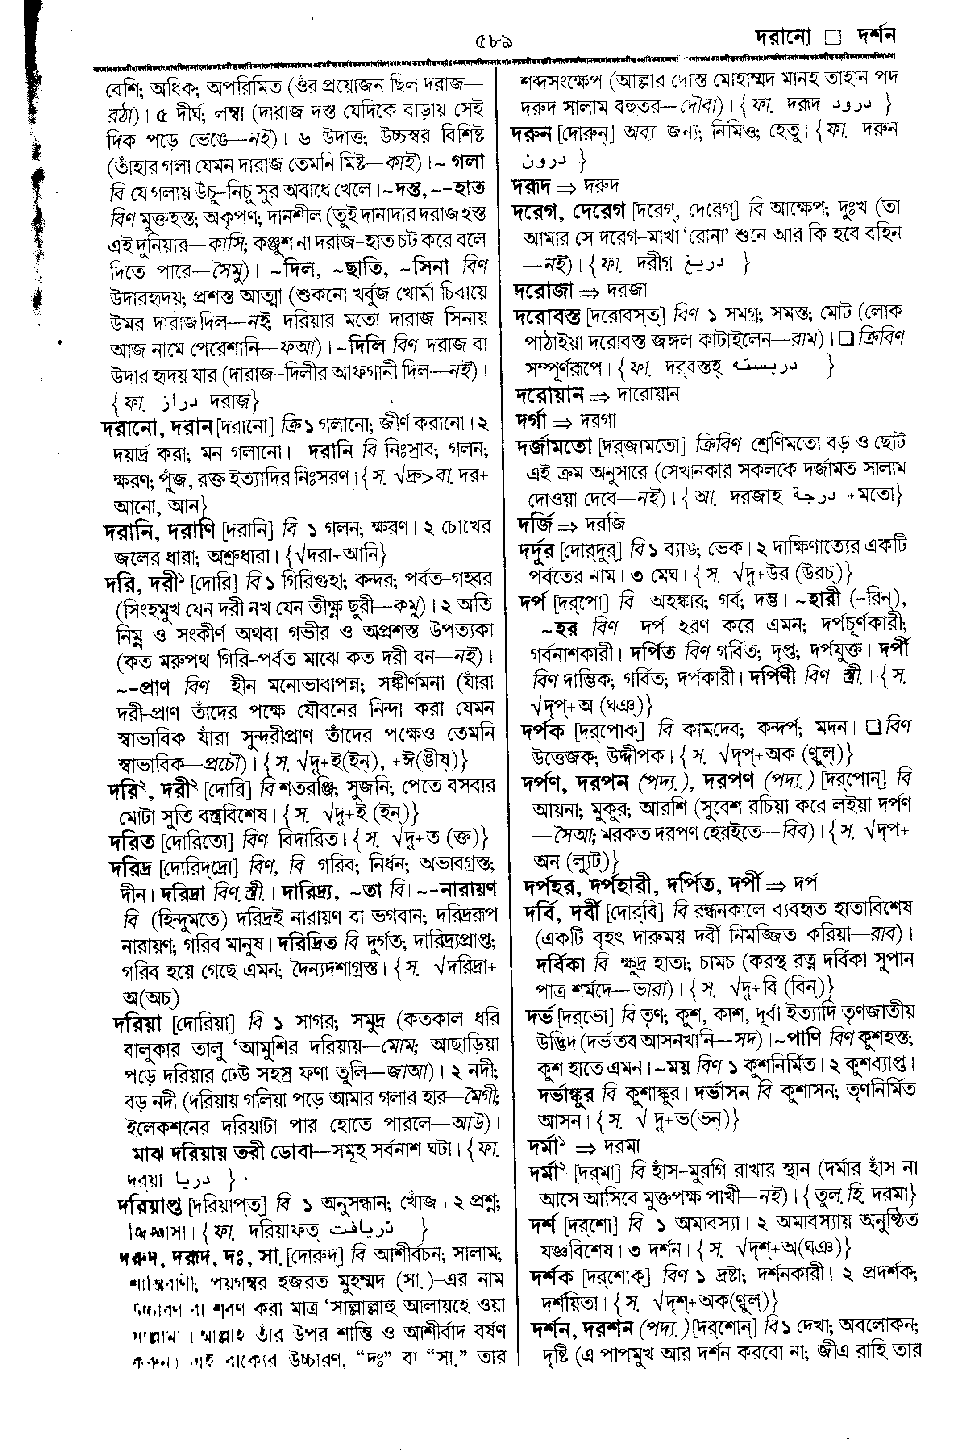 ৫৮৯
দরানো □ দর্শন
বেশি; অধিক; অপরিমিত (ওঁর প্রয়োজন ছিল দরাজ—
রঠা)। ৫ দীর্ঘ; লম্বা (দারাজ দস্ত যেদিকে বাড়ায় সেই
দিক পড়ে ভেঙে—নই)। ৬ উদাত্ত; উচ্চস্বর বিশিষ্ট
(তাঁহার গলা যেমন দারাজ তেমনি মিষ্ট—কাই)। ~ গলা
বি যে গলায় উঁচু-নিচু সুর অবাধে খেলে। ~দস্ত, ~-হাত
বিণ মুক্তহস্ত; অকৃপণ; দানশীল (তুই দানাদার দরাজ হস্ত
এই দুনিয়ার—কাসি; কঞ্জুশ না দরাজ-হাত চট করে বলে
দিতে পারে—সৈমু)। ~দিল, ~ছাতি, ~সিনা বিণ
উদারহৃদয়; প্রশস্ত আত্মা (শুকনো খর্বুজ খোর্মা চিবায়ে
উমর দারাজদিল—নই, দরিয়ার মতো দারাজ সিনায়
আজ নামে পেরেশানি—ফআ)। ~দিলি বিণ দরাজ বা
উদার হৃদয় যার (দারাজ-দিলীর আফগানী দিল—নই)।
{ফা. دراز দরাজ}
দরানো, দরান [দরানো] ক্রি ১ গলানো; জীর্ণ করানো। ২
দয়ার্দ্র করা; মন গলানো। দরানি বি নিঃস্রাব; গলন;
ক্ষরণ; পুঁজ, রক্ত ইত্যাদির নিঃসরণ। {স. √দ্রু> বা. দর+
আনো, আন}
দরানি, দরাণি [দরানি] বি ১ গলন; ক্ষরণ। ২ চোখের
জলের ধারা; অশ্রুধারা। {√দরা-আনি}
দরি, দরী১ [দোরি] বি ১ গিরিগুহা; কন্দর; পর্বত-গহ্বর
(সিংহমুখ যেন দরী নখ যেন তীক্ষ্ণ ছুরী—কমু)। ২ অতি
নিম্ন ও সংকীর্ণ অথবা গভীর ও অপ্রশস্ত উপত্যকা
(কত মরুপথ গিরি-পর্বত মাঝে কত দরী বন—নই)।
~-প্রাণ বিণ হীন মনোভাবাপন্ন; সঙ্কীর্ণমনা (যাঁরা
দরী-প্রাণ তাঁদের পক্ষে যৌবনের নিন্দা করা যেমন
স্বাভাবিক যাঁরা সুন্দরীপ্রাণ তাঁদের পক্ষেও তেমনি
স্বাভাবিক—প্রচৌ)। {স. √দৃ+ই(ইন), +ঈ(ঙীষ্)}
দরি২, দরী২ [দোরি] বি শতরঞ্জি; সুজনি; পেতে বসবার
মোটা সুতি বস্ত্রবিশেষ। {স. √দৃ+ই (ইন)}
দরিত [দোরিতো] বিণ বিদারিত। {স. √দৃ+ত (ক্ত)}
দরিদ্র [দোরিদ্‌দ্রো] বিণ, বি গরিব; নির্ধন; অভাবগ্রস্ত;
দীন। দরিদ্রা বিণ স্ত্রী। দারিদ্র্য, ~তা বি। ~-নারায়ণ
বি (হিন্দুমতে) দরিদ্রই নারায়ণ বা ভগবান; দরিদ্ররূপ
নারায়ণ; গরিব মানুষ। দরিদ্রিত বি দুর্গত; দারিদ্র্যপ্রাপ্ত;
গরিব হয়ে গেছে এমন; দৈন্যদশাগ্রস্ত। {স. √দরিদ্রা+
অ(অচ্)
দরিয়া [দোরিয়া] বি ১ সাগর; সমুদ্র (কতকাল ধরি
বালুকার তালু 'আমুশির দরিয়ায়—মোম; আছাড়িয়া
পড়ে দরিয়ার ঢেউ সহস্র ফণা তুলি—জাআ)। ২ নদী;
বড় নদী (দরিয়ায় গলিয়া পড়ে আমার গলার হার—মৈগী;
ইলেকশনের দরিয়াটা পার হোতে পারলে—আউ)।
মাঝ দরিয়ায় তরী ডোবা—সমূহ সর্বনাশ ঘটা। {ফা.
দরয়া دريا }
দরিয়াপ্ত [দরিয়াপ্‌ত্] বি ১ অনুসন্ধান; খোঁজ। ২ প্রশ্ন;
জিজ্ঞাসা। {ফা. দরিয়াফত্ دريافت }
দরুদ, দরূদ, দঃ, সা. [দোরুদ] বি আশীর্বচন; সালাম;
শান্তিবাণী; পয়গম্বর হজরত মুহম্মদ (সা.)-এর নাম
উচ্চারণ বা শ্রবণ করা মাত্র 'সাল্লাল্লাহু আলায়হে ওয়া
সাল্লাম'। আল্লাহ তাঁর উপর শান্তি ও আশীর্বাদ বর্ষণ
করুন। এই বাক্যের উচ্চারণ, "দঃ" বা "সা." তার
শব্দসংক্ষেপ (আল্লার দোস্ত মোহাম্মদ মানহ তাহান পদ
দরুদ সালাম বহুতর—দৌবা)। {ফা. দরূদ درود }
দরুন [দোরুন্] অব্য জন্য; নিমিত্ত; হেতু। {ফা. দরুন
درون }
দরূদ ⇒ দরুদ
দরেগ, দেরেগ [দরেগ্, দেরেগ] বি আক্ষেপ; দুঃখ (তা
আমার সে দরেগ-মাখা 'রোনা' শুনে আর কি হবে বহিন
—নই)। {ফা. দরীগ دريغ }
দরোজা ⇒ দরজা
দরোবস্ত [দরোবস্‌ত্] বিণ ১ সমগ্র; সমস্ত; মোট (লোক
পাঠাইয়া দরোবস্ত জঙ্গল কাটাইলেন—রাম)। □ ক্রিবিণ
সম্পূর্ণরূপে। {ফা. দর্‌বস্তহ্ دربسته }
দরোয়ান ⇒ দারোয়ান
দর্গা ⇒ দরগা
দর্জামতো [দর্‌জামতো] ক্রিবিণ শ্রেণিমতো বড় ও ছোট
এই ক্রম অনুসারে (সেখানকার সকলকে দর্জামত সালাম
দোওয়া দেবে—নই)। {আ. দরজাহ درجة +মতো}
দর্জি ⇒ দরজি
দর্দুর [দোর্‌দুর্] বি ১ ব্যাঙ; ভেক। ২ দাক্ষিণাত্যের একটি
পর্বতের নাম। ৩ মেঘ। {স. √দৃ+উর (উরচ্)}
দর্প [দর্‌পো] বি অহঙ্কার; গর্ব; দম্ভ। ~হারী (-রিন্),
~হর বিণ দর্প হরণ করে এমন; দর্পচূর্ণকারী;
গর্বনাশকারী। দর্পিত বিণ গর্বিত; দৃপ্ত; দর্পযুক্ত। দর্পী
বিণ দাম্ভিক; গর্বিত; দর্পকারী। দর্পিণী বিণ স্ত্রী। {স.
√দৃপ্+অ (ঘঞ্)}
দর্পক [দর্‌পোক্] বি কামদেব; কন্দর্প; মদন। □ বিণ
উত্তেজক; উদ্দীপক। {স. √দৃপ্+অক (ণ্বুল্)}
দর্পণ, দরপন (পদ্য.), দরপণ (পদ্য.) [দর্‌পোন্] বি
আয়না; মুকুর; আরশি (সুবেশ রচিয়া করে লইয়া দর্পণ
—সৈআ; মরকত দরপণ হেরইতে—বিব)। {স. √দৃপ্+
অন (ল্যুট্)}
দর্পহর, দর্পহারী, দর্পিত, দর্পী ⇒ দর্প
দর্বি, দর্বী [দোর্‌বি] বি রন্ধনকালে ব্যবহৃত হাতাবিশেষ
(একটি বৃহৎ দারুময় দর্বী নিমজ্জিত করিয়া—রাব)।
দর্বিকা বি ক্ষুদ্র হাতা; চামচ (করস্থ রত্ন দর্বিকা সুপান
পাত্র শর্মদে—ভারা)। {স. √দৃ+বি (বিন্)}
দর্ভ [দর্‌ভো] বি তৃণ; কুশ, কাশ, দূর্বা ইত্যাদি তৃণজাতীয়
উদ্ভিদ (দর্ভতব আসনখানি—সদ)। ~পাণি বিণ কুশহস্ত;
কুশ হাতে এমন। ~ময় বিণ ১ কুশনির্মিত। ২ কুশব্যাপ্ত।
দর্ভাঙ্কুর বি কুশাঙ্কুর। দর্ভাসন বি কুশাসন; তৃণনির্মিত
আসন। {স. √ দৃ+ভ(ভন্)}
দর্মা১ ⇒ দরমা
দর্মা২ [দর্‌মা] বি হাঁস-মুরগি রাখার স্থান (দর্মার হাঁস না
আসে আসিবে মুক্তপক্ষ পাখী—নই)। {তুল. হি. দরমা}
দর্শ [দর্‌শো] বি ১ অমাবস্যা। ২ অমাবস্যায় অনুষ্ঠিত
যজ্ঞবিশেষ। ৩ দর্শন। {স. √দৃশ্+অ(ঘঞ্)}
দর্শক [দর্‌শোক্] বিণ ১ দ্রষ্টা; দর্শনকারী। ২ প্রদর্শক;
দর্শয়িতা। {স. √দৃশ্+অক(ণ্বুল্)}
দর্শন, দরশন (পদ্য.) [দর্‌শোন্] বি ১ দেখা; অবলোকন;
দৃষ্টি (এ পাপমুখ আর দর্শন করবো না; জীএ রাহি তার